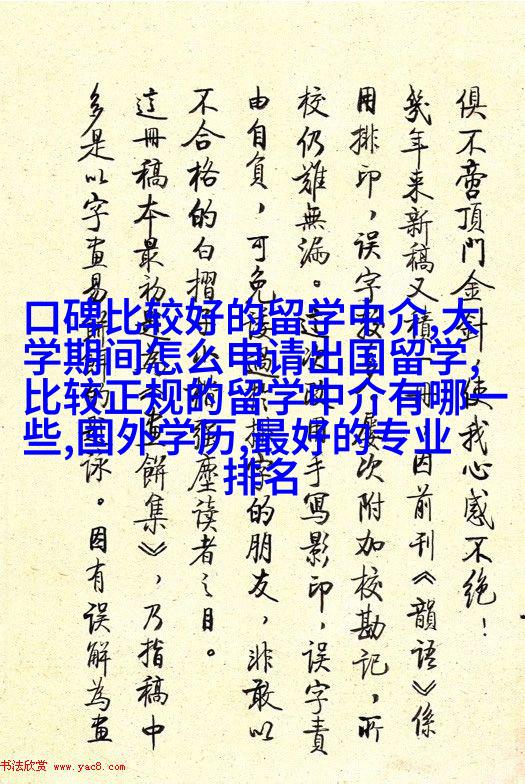 口碑比较好的留学中介,大
学期间怎么申请出国留学,
比较正规的留学中介有哪一
些,国外学历,最好的专业
排名
俱不啻頂門金針,使我心感不絕!
幾年来新稿又積一冊,因前刊《韻語》係
用排印,誤字較多,屢次附加校勘記,所
校仍難無漏。這次改用手寫影印,誤字責
由自負,可免 排字的朋友,非敢以
不合格的白摺子小楷强塵读者之目。
這冊稿本最初 畫餅集》,乃指稿中
多是以字畫易餅 題詠。因有誤解為畫
书法欣赏 www.yac8.com